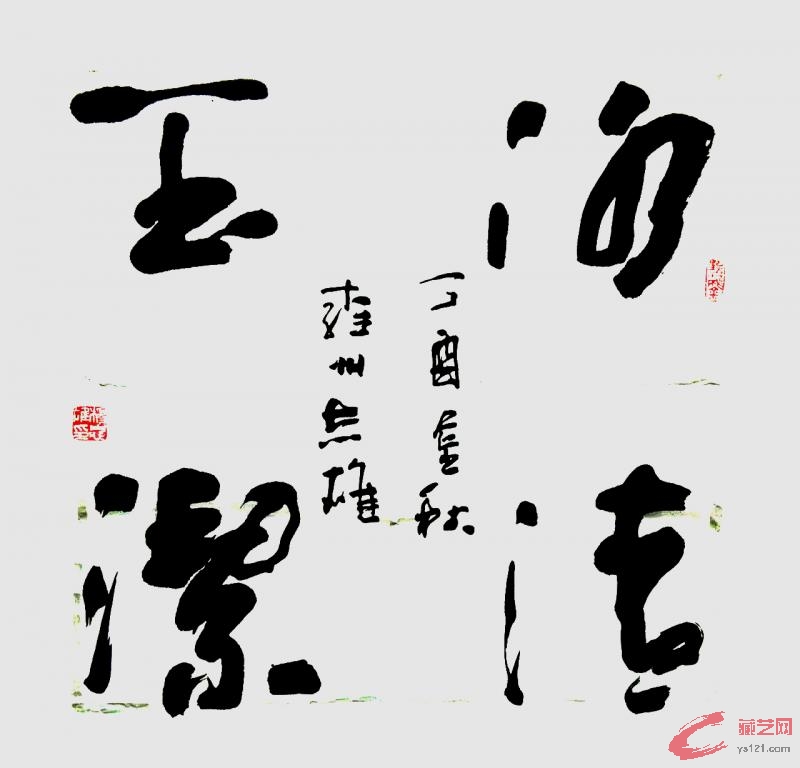 冰清
玉潔
丁酉金秋
雍州志雄
藏艺网
ys121.com